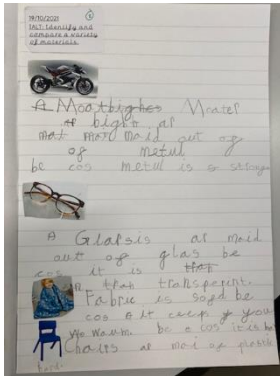 19/10/2021
IALT: Identify and
compare a variety
of materials.
A Moatbighes Mcater
bighr ar
mat mar maid out of
of metul
be cos metul is a strong
A Glarsis ar maid
out of glas be
cos it is
than transparent.
Fabric is sogd be
cos it ceep you
wo waum. be cos it is
Chairs ar mai of plastik
hard.